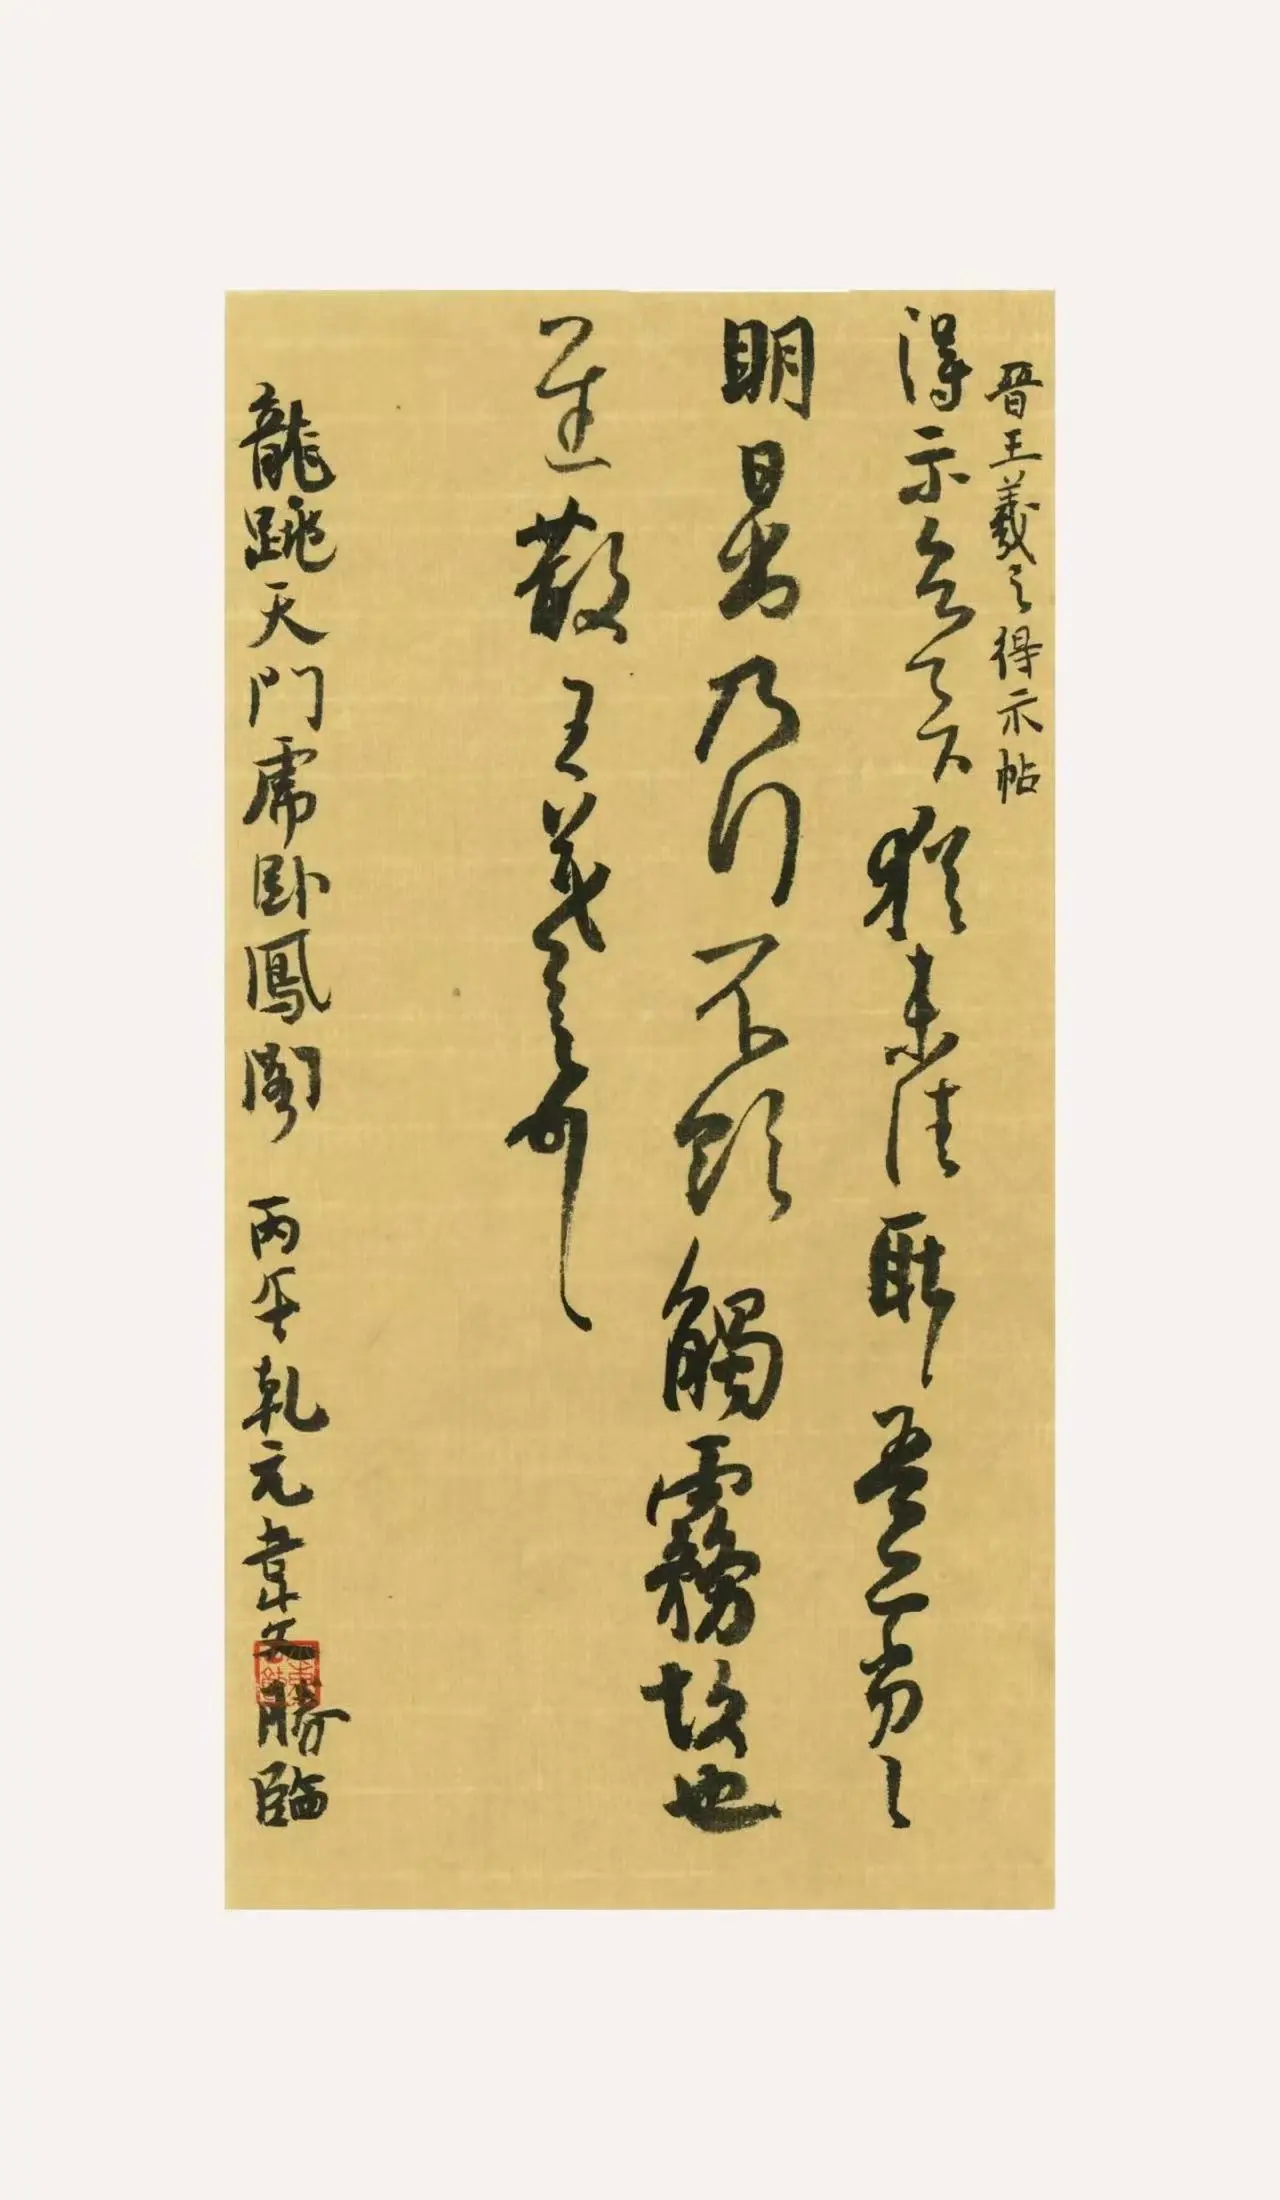 晉王羲之得示帖
得示知足下猶未佳耿〻吾亦劣〻
明日出乃行不欲觸霧故也
遲散王羲之頓首
龍跳天門虎卧鳳閣 丙午乾元韋文勝臨